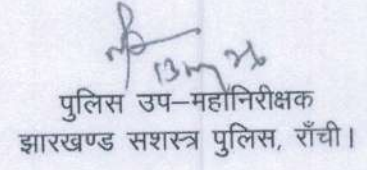 पुलिस उप–महानिरीक्षक
झारखण्ड सशस्त्र पुलिस, राँची।